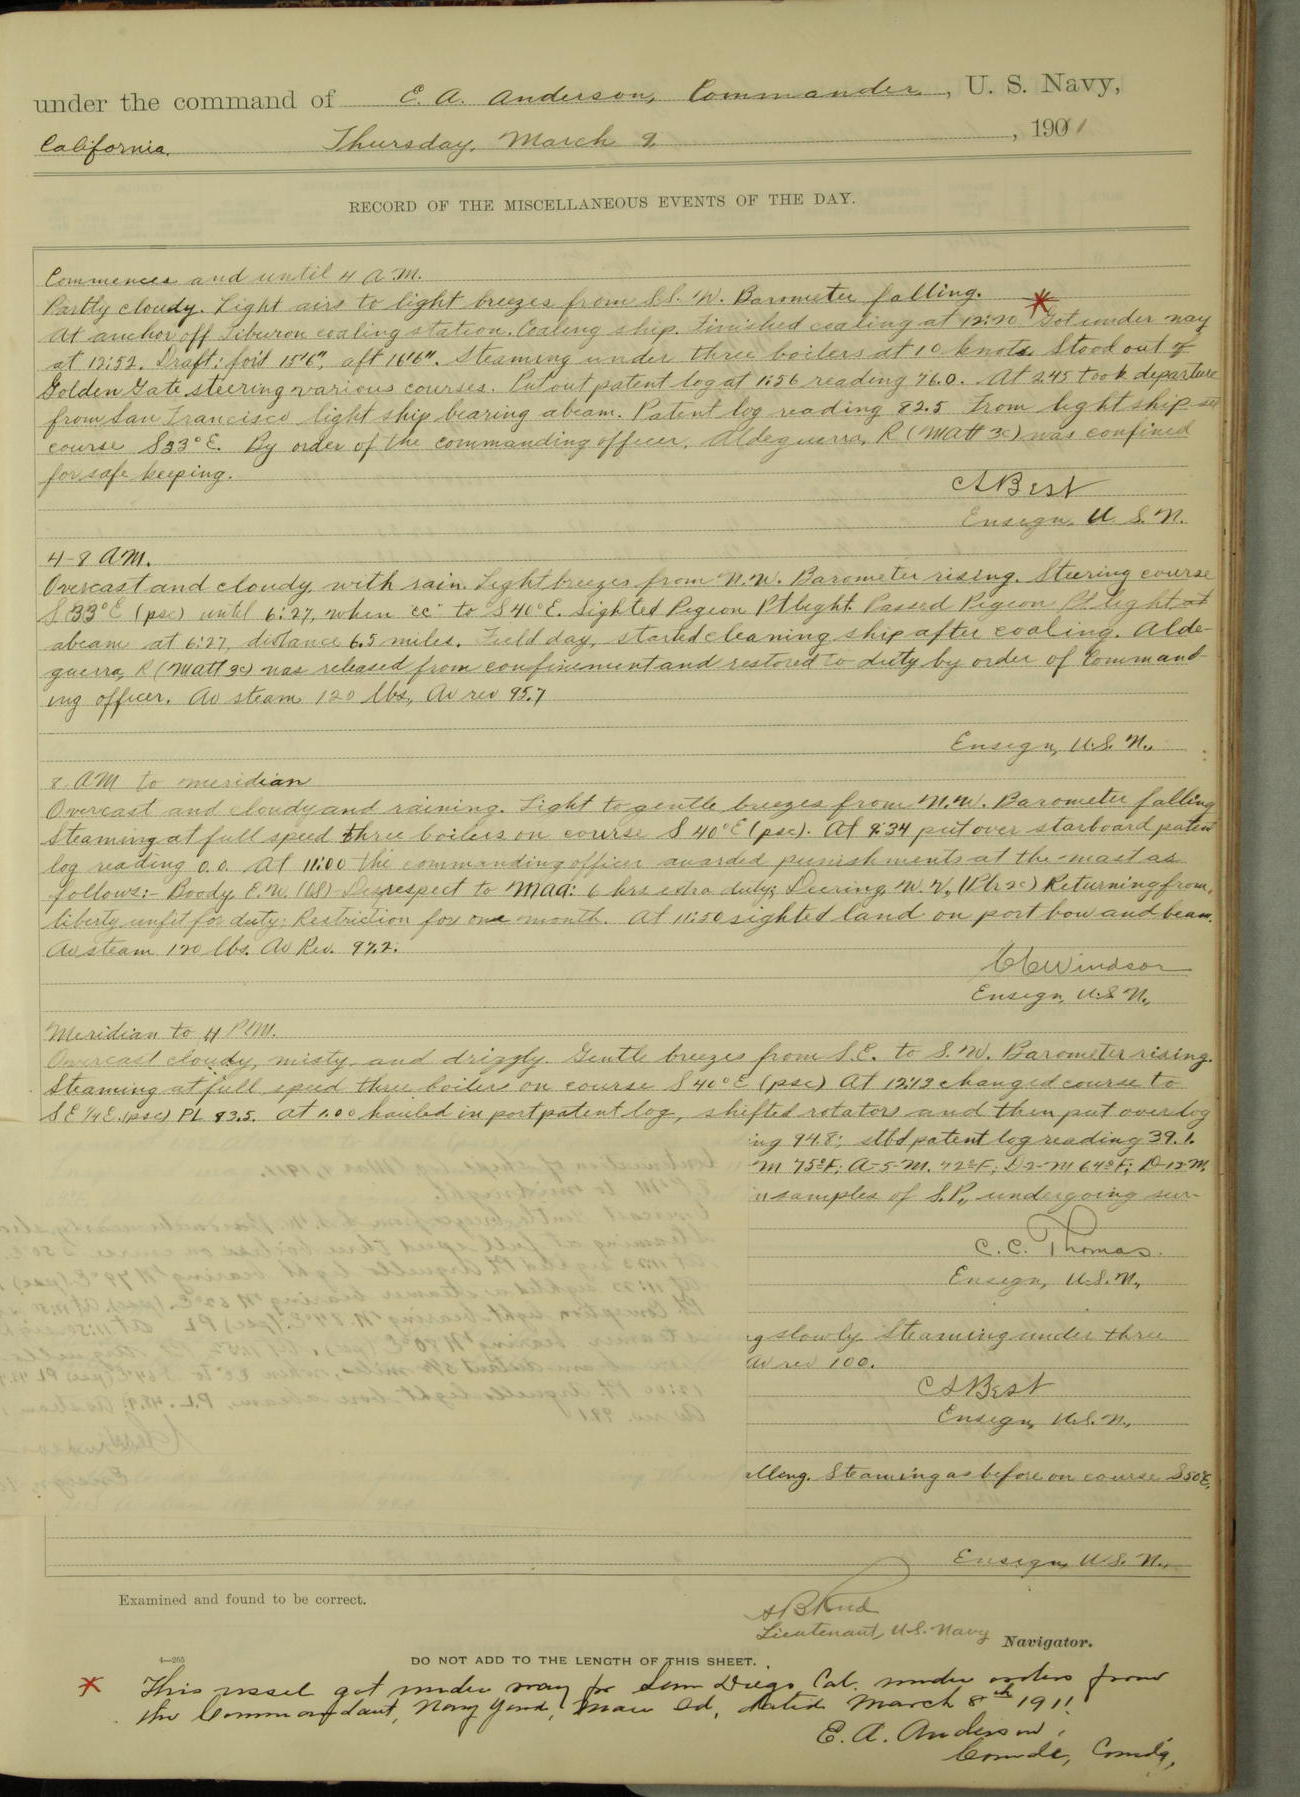 under the command of E. A. Anderson, Commander, U. S. Navy,
California. Thursday, March 9, 1901
RECORD OF THE MISCELLANEOUS EVENTS OF THE DAY.
Commences and until 4 A M.
Partly cloudy. Light airs to light breezes from S.S. W. Barometer falling.
At anchor off Tiburon coaling station. Coaling ship. Finished coaling at 12:20 * Got under way
at 12:52. Draft: for'd 15'6", aft 16'6". Steaming under three boilers at 10 knots. Stood out of
Golden Gate steering various courses. Put out patent log at 1:56 reading 76.0. At 2.45 took departure
from San Francisco light ship bearing abeam. Patent log reading 82.5 From light ship set
course S33°E. By order of the commanding officer, Aldeguerra, R (Matt 3c) was confined
for safe keeping.
C S Best
Ensign, U. S. N.
4-8 A M.
Overcast and cloudy with rain. Light breezes from N.W. Barometer rising. Steering course
S 33°E (psc) until 6:27, when cc to S 40°E. Sighted Pigeon Pt light. Passed Pigeon Pt light at
abeam at 6:27, distance 6.5 miles. Field day, started cleaning ship after coaling. Alde-
guerra, R (Matt 3c) was released from confinement and restored to duty by order of Command-
ing officer. Av steam 120 lbs, Av rev 95.7
Ensign, U.S. N.,
8 AM to meridian
Overcast and cloudy and raining. Light to gentle breezes from N.W. Barometer falling
Steaming at full speed three boilers on course S 40°E (psc). At 9:34 put over starboard patent
log reading 0.0. At 11:00 the commanding officer awarded punishments at the mast as
follows:- Boody, E.W. (LS) Disrespect to Maa: 6 hrs extra duty; Deering, W. V, (Ptr 2c) Returning from
liberty unfit for duty: Restriction for one month. At 11:50 sighted land on port bow and beam.
Av steam 120 lbs. Av Rev. 97.2.
C C Windsor
Ensign, U.S N.,
Meridian to 4 P.M.
Overcast cloudy, misty and drizzly. Gentle breezes from S.E. to S.W. Barometer rising.
Steaming at full speed three boilers on course S 40°E (psc) At 12:12 changed course to
S E ¼ E. (psc) PL 83.5. At 1.00 hauled in port patent log, shifted rotators and then put over log
ing 94.8; stbd patent log reading 39.1.
M 75°F; A-5-M. 72°F; D-2-M 64°F; D-12-M.
n samples of S.P., undergoing sur-
C. C. Thomas.
Ensign, U.S.N.,
g slowly. Steaming under three
av rev 100.
C S Best
Ensign, U.S. N.,
alling. Steaming as before on course S50°E,
Ensign, U.S. N.,
Examined and found to be correct.
Lieutenant, U.S. Navy Navigator.
4—265
DO NOT ADD TO THE LENGTH OF THIS SHEET.
* This vessel got under way for San Diego, Cal. under orders from
the Commandant, Navy Yard, Mare Id, dated March 8th 1911.
E. A. Anderson,
Comdr, Comd'g,